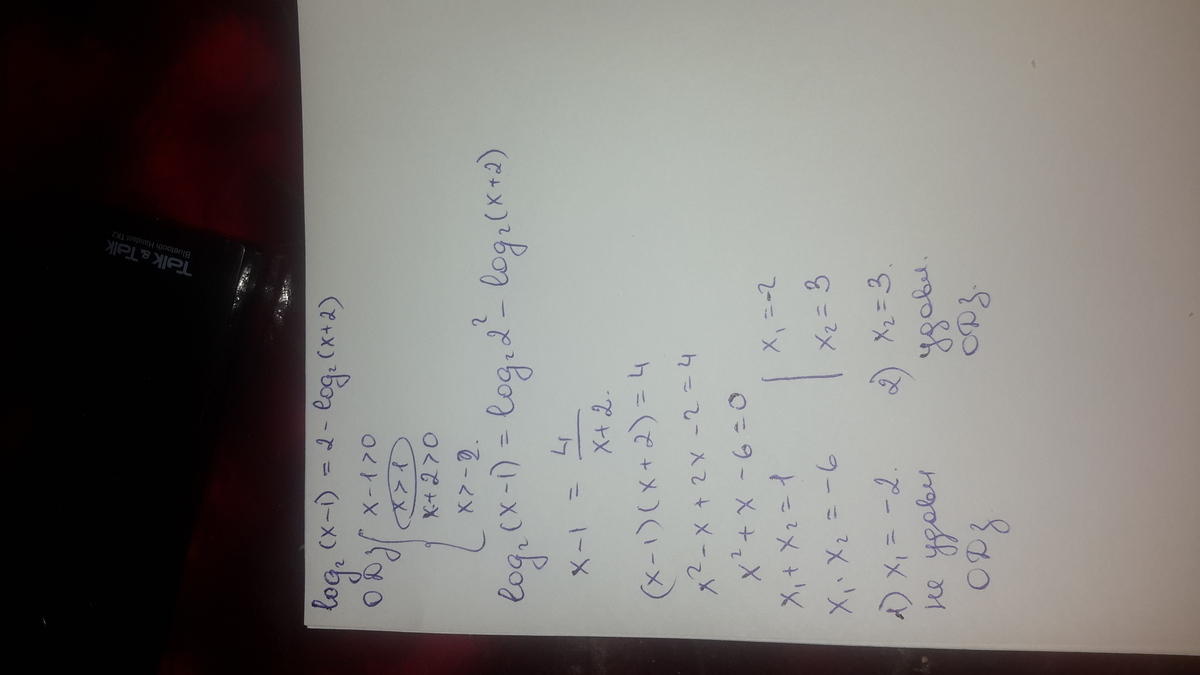 log₂(x-1) = 2 - log₂(x+2)
ОДЗ { x-1>0
x>1
x+2>0
x>-2.
log₂(x-1) = log₂2² - log₂(x+2)
x-1 = 4/(x+2).
(x-1)(x+2) = 4
x²-x+2x-2=4
x²+x-6=0
x₁+x₂=1 [ x₁=-2
x₁·x₂=-6 x₂=3
1) x₁=-2. 2) x₂=3.
не удовл удовл.
ОДЗ ОДЗ.
Talk & Talk
Bluetooth Handset TK2